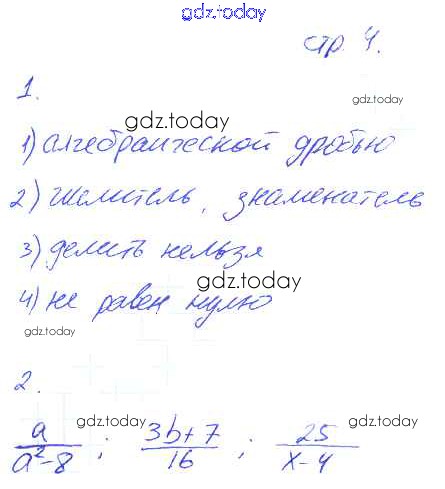 gdz.today
стр. 4.
1.
gdz.today
gdz.today
1) алгебраической дробью
2) числитель, знаменатель
3) делить нельзя
gdz.today
4) не равен нулю
gdz.today
2.
gdz.today gdz.today gdz.today
a/(a²-8) ; (3b+7)/16 ; 25/(x-4)